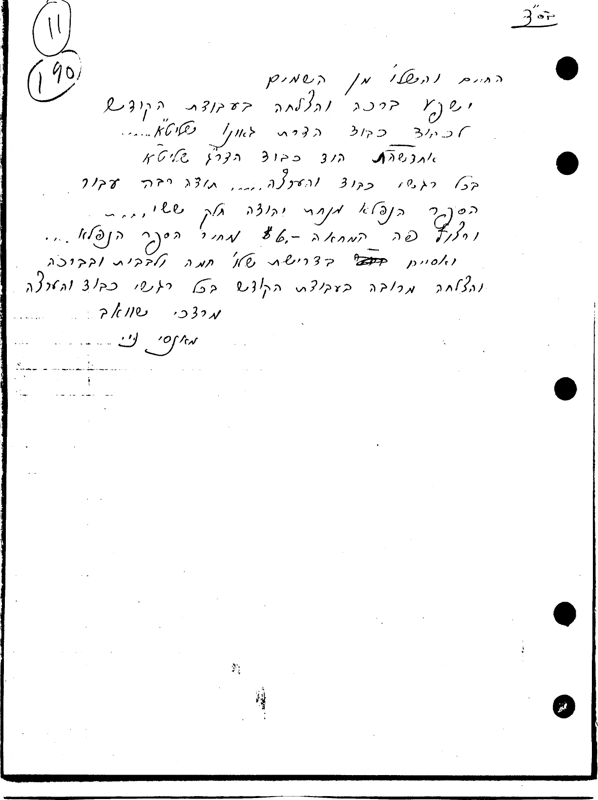 11
190
בס"ד
החיים והשלו' מן השמים
ישפע ברכה והצלחה בעבודת הקודש
לכבוד כבוד הדרת גאונו שליט"א.....
אחדשה"ט הוד כבוד הדר"ג שליט"א
בכל רגשי כבוד והערצה..... תודה רבה עבור
הספר הנפלא מנחת יהודה חלק ששי.....
ורצוף פה המחאה $6,- מחיר הספר הנפלא...
ואסיים בדרישת שלו' חמה ולבבית ובברכה
והצלחה מרובה בעבודת הקודש בכל רגשי כבוד והערצה
מרדכי שוואב
מאנסי נ.י.